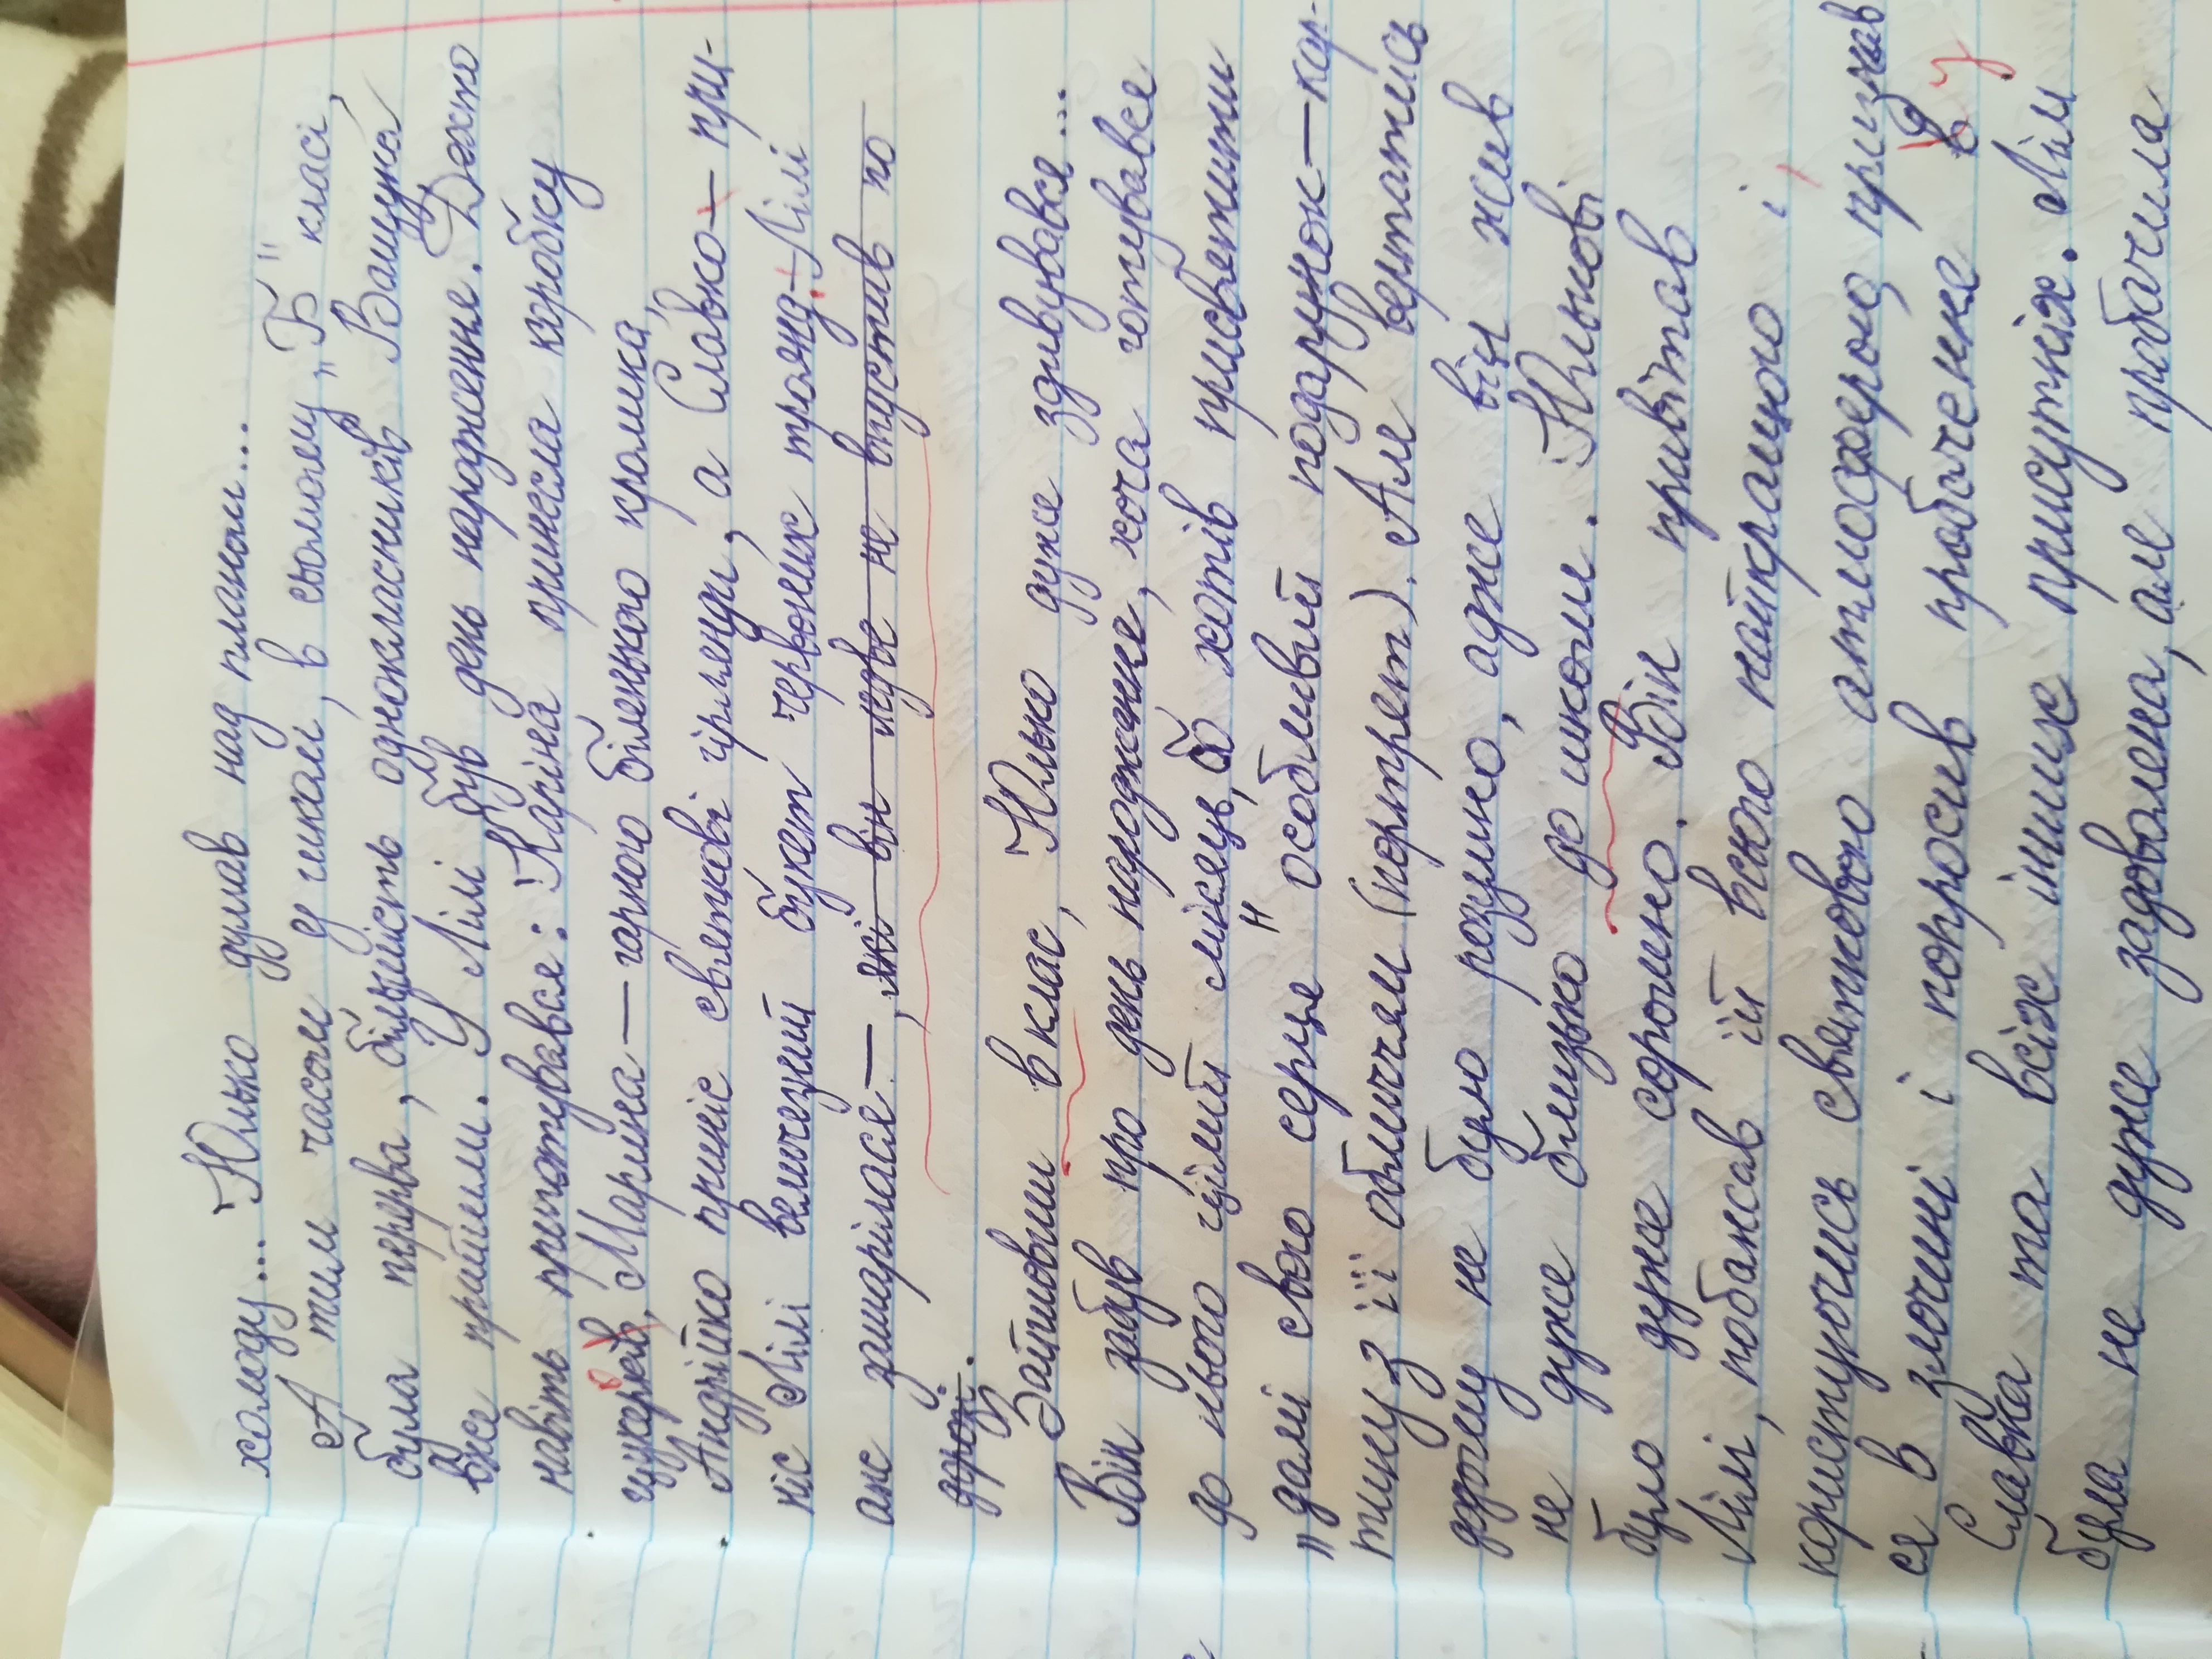 холоду... Юлько думав над планом...
А тим часом у школі, в сьомому „Б" класі,
була перерва, більшість однокласників Ващука
вже прийшли. У Лілі був день народження. Дехто
навіть приготувався: Каріна принесла коробку
цукерків, Марина — гарного біленького кролика,
Андрійко приніс святкові гірлянди, а Славко — при-
ніс Лілі величезний букет червоних троянд. Лілі
аж зашарілася —, які він ледве не впустив по
дорозі.
Зайшовши в клас, Юлько дуже здивувався...
Він забув про день народження, хоча готувався
до нього цілий місяць, бо хотів присвятити
„дамі свого серця" особливий подарунок — кар-
тину з її обличчям (портрет). Але вертатись
додому не було розумно, адже він жив
не дуже близько до школи. Юлькові
було дуже соромно. Він привітав
Лілі, побажав їй всього найкращого і,
користуючись святковою атмосферою, признав
ся в злочині і попросив пробачення в у
Славка та всіх інших присутніх. Лілі
була не дуже задоволена, але пробачила